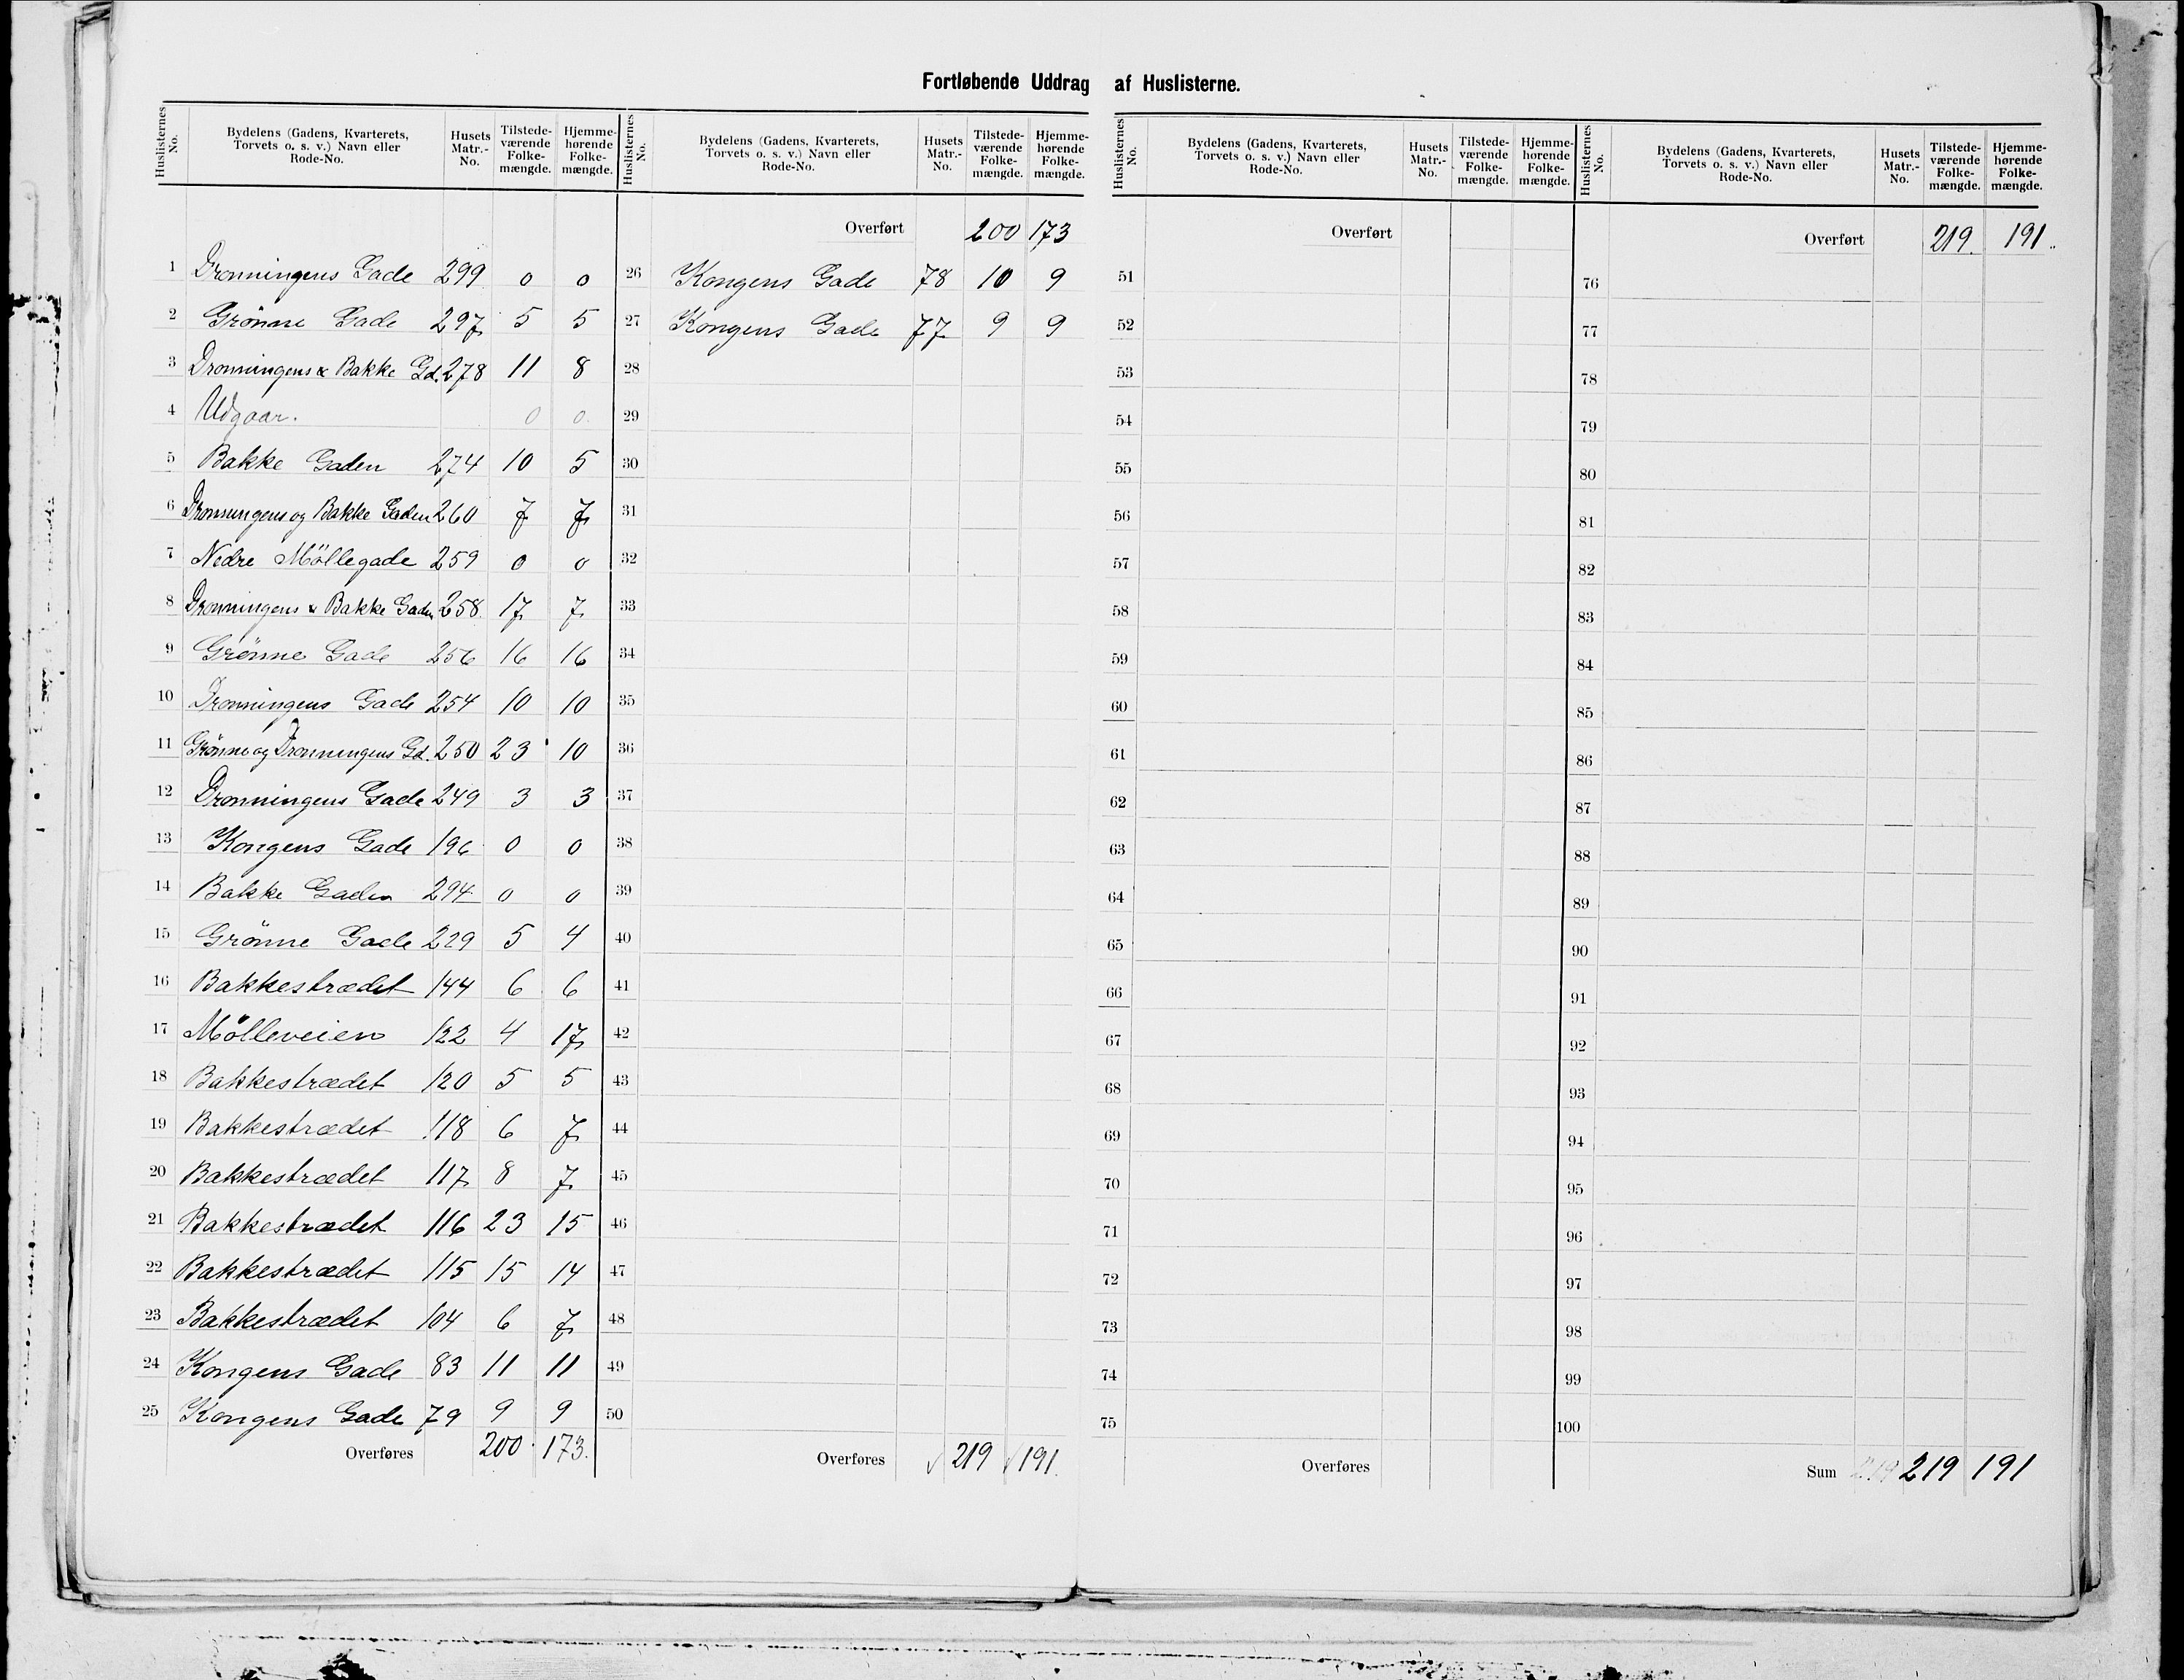 Fortløbende Uddrag af Huslisterne.
Huslisternes No. Bydelens (Gadens, Kvarterets, Torvets o. s. v.) Navn eller Rode-No. Husets Matr.-No. Tilstede-værende Folke-mængde. Hjemme-hørende Folke-mængde.
1 Dronningens Gade 299 0 0
2 Grönne Gade 297 5 5
3 Dronningens & Bakke Gd. 278 11 8
4 Udgaar. 0 0
5 Bakke Gaden 274 10 5
6 Dronningens og Bakke Gaden 260 7 7
7 Nedre Möllegade 259 0 0
8 Dronningens & Bakke Gaden 258 17 7
9 Grönne Gade 256 16 16
10 Dronningens Gade 254 10 10
11 Grönne og Dronningens Gd. 250 23 10
12 Dronningens Gade 249 3 3
13 Kongens Gade 196 0 0
14 Bakke Gaden 294 0 0
15 Grönne Gade 229 5 4
16 Bakkestrædet 144 6 6
17 Mölleveien 122 4 17
18 Bakkestrædet 120 5 5
19 Bakkestrædet 118 6 7
20 Bakkestrædet 117 8 7
21 Bakkestrædet 116 23 15
22 Bakkestrædet 115 15 14
23 Bakkestrædet 104 6 7
24 Kongens Gade 83 11 11
25 Kongens Gade 79 9 9
Overføres 200 173
Huslisternes No. Bydelens (Gadens, Kvarterets, Torvets o. s. v.) Navn eller Rode-No. Husets Matr.-No. Tilstede-værende Folke-mængde. Hjemme-hørende Folke-mængde.
Overført 200 173
26 Kongens Gade 78 10 9
27 Kongens Gade 77 9 9
28
29
30
31
32
33
34
35
36
37
38
39
40
41
42
43
44
45
46
47
48
49
50
Overføres 219 191
Huslisternes No. Bydelens (Gadens, Kvarterets, Torvets o. s. v.) Navn eller Rode-No. Husets Matr.-No. Tilstede-værende Folke-mængde. Hjemme-hørende Folke-mængde.
Overført
51
52
53
54
55
56
57
58
59
60
61
62
63
64
65
66
67
68
69
70
71
72
73
74
75
Overføres
Huslisternes No. Bydelens (Gadens, Kvarterets, Torvets o. s. v.) Navn eller Rode-No. Husets Matr.-No. Tilstede-værende Folke-mængde. Hjemme-hørende Folke-mængde.
Overført 219. 191.
76
77
78
79
80
81
82
83
84
85
86
87
88
89
90
91
92
93
94
95
96
97
98
99
100
Sum 219 219 191